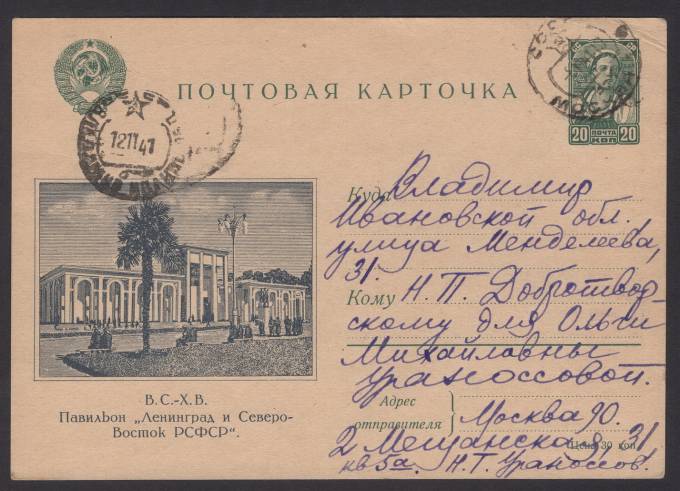 ПОЧТОВАЯ КАРТОЧКА
20 ПОЧТА 20
КОП
МОСКВА
12 11 41
Куда Владимир
Ивановской обл.
улица Менделеева,
31.
Кому Н. П. Добротвор-
скому для Ольги
Михайлавны
Ураноссовой.
В.С.-Х.В.
Павильон „Ленинград и Северо-
Восток РСФСР“.
Адрес
отправителя
Москва 90.
2 Мещанская, 31
Цена 30 коп.
кв 5а. Н. Т. Ураноссов.